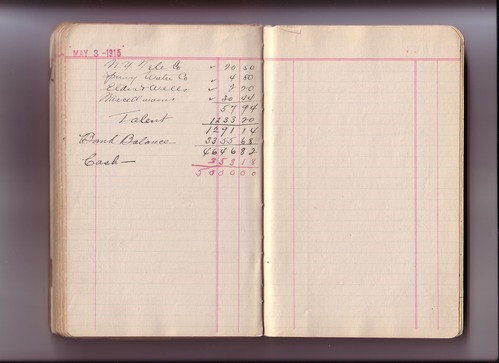 MAY 3 - 1915
N Y Tele Co ✓ 20 50
Water Co ✓ 4 80
Elder & Wells ✓ 2 20
Miscellaneous ✓ 30 44
57 94
Talent 1233 20
1291 14
Bank Balance 3355 68
4646 82
Cash — 353 18
5000 00